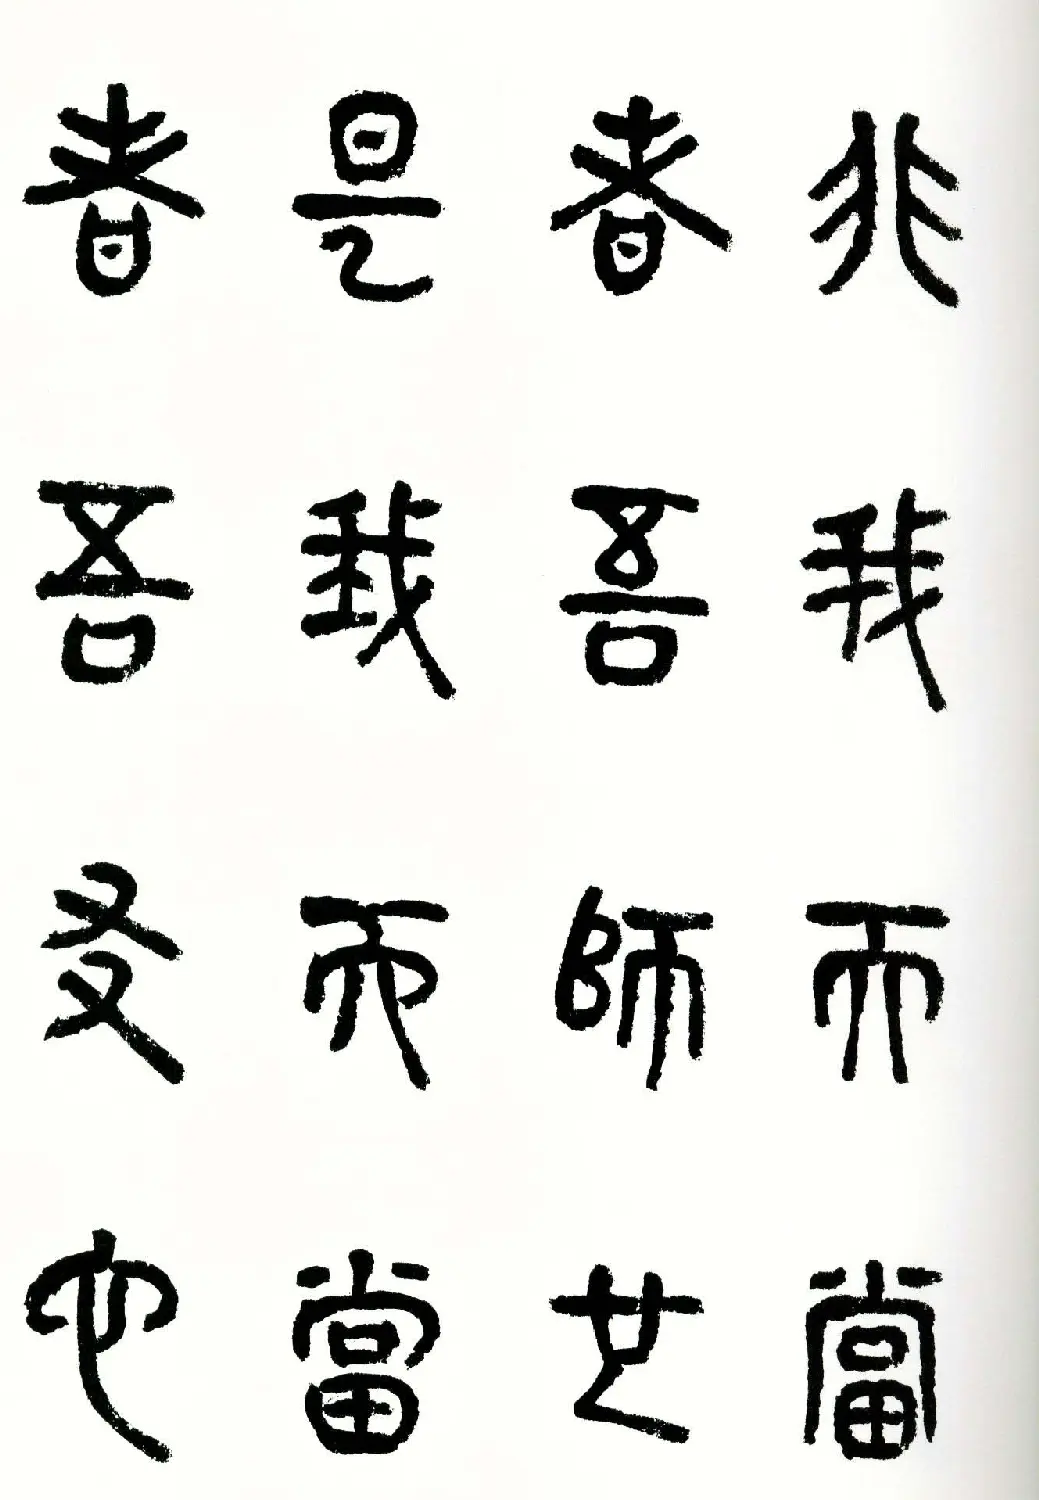 非我而當
者吾師也
是我而當
者吾友也